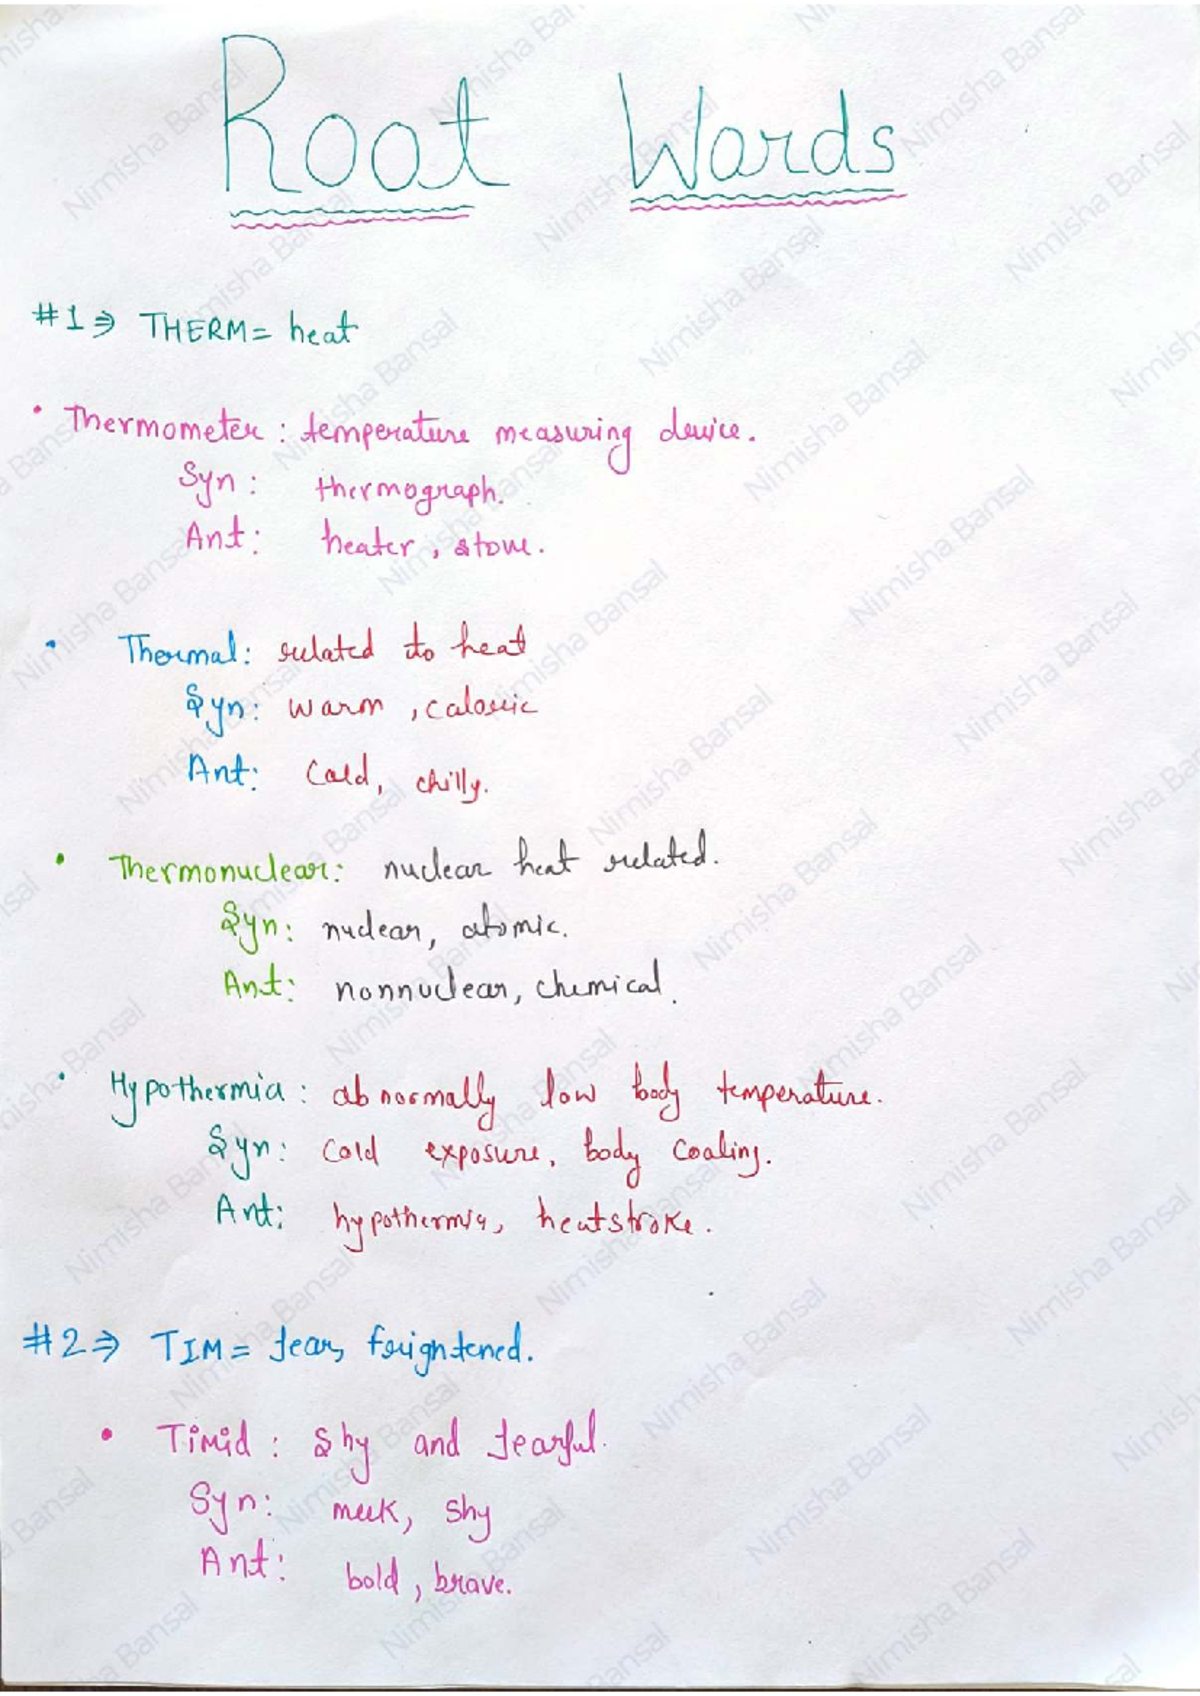 Root Words
#1⇒ THERM= heat
• Thermometer: temperature measuring device.
Syn: thermograph.
Ant: heater, stove.
• Thermal: related to heat
Syn: warm, caloric
Ant: Cold, chilly.
• Thermonuclear: nuclear heat related.
Syn: nuclear, atomic.
Ant: nonnuclear, chemical.
• Hypothermia: abnormally low body temperature.
Syn: cold exposure, body cooling.
Ant: hypothermia, heatstroke.
#2⇒ TIM= fear, frightened.
• Timid: Shy and fearful.
Syn: meek, shy
Ant: bold, brave.
Nimisha Bansal